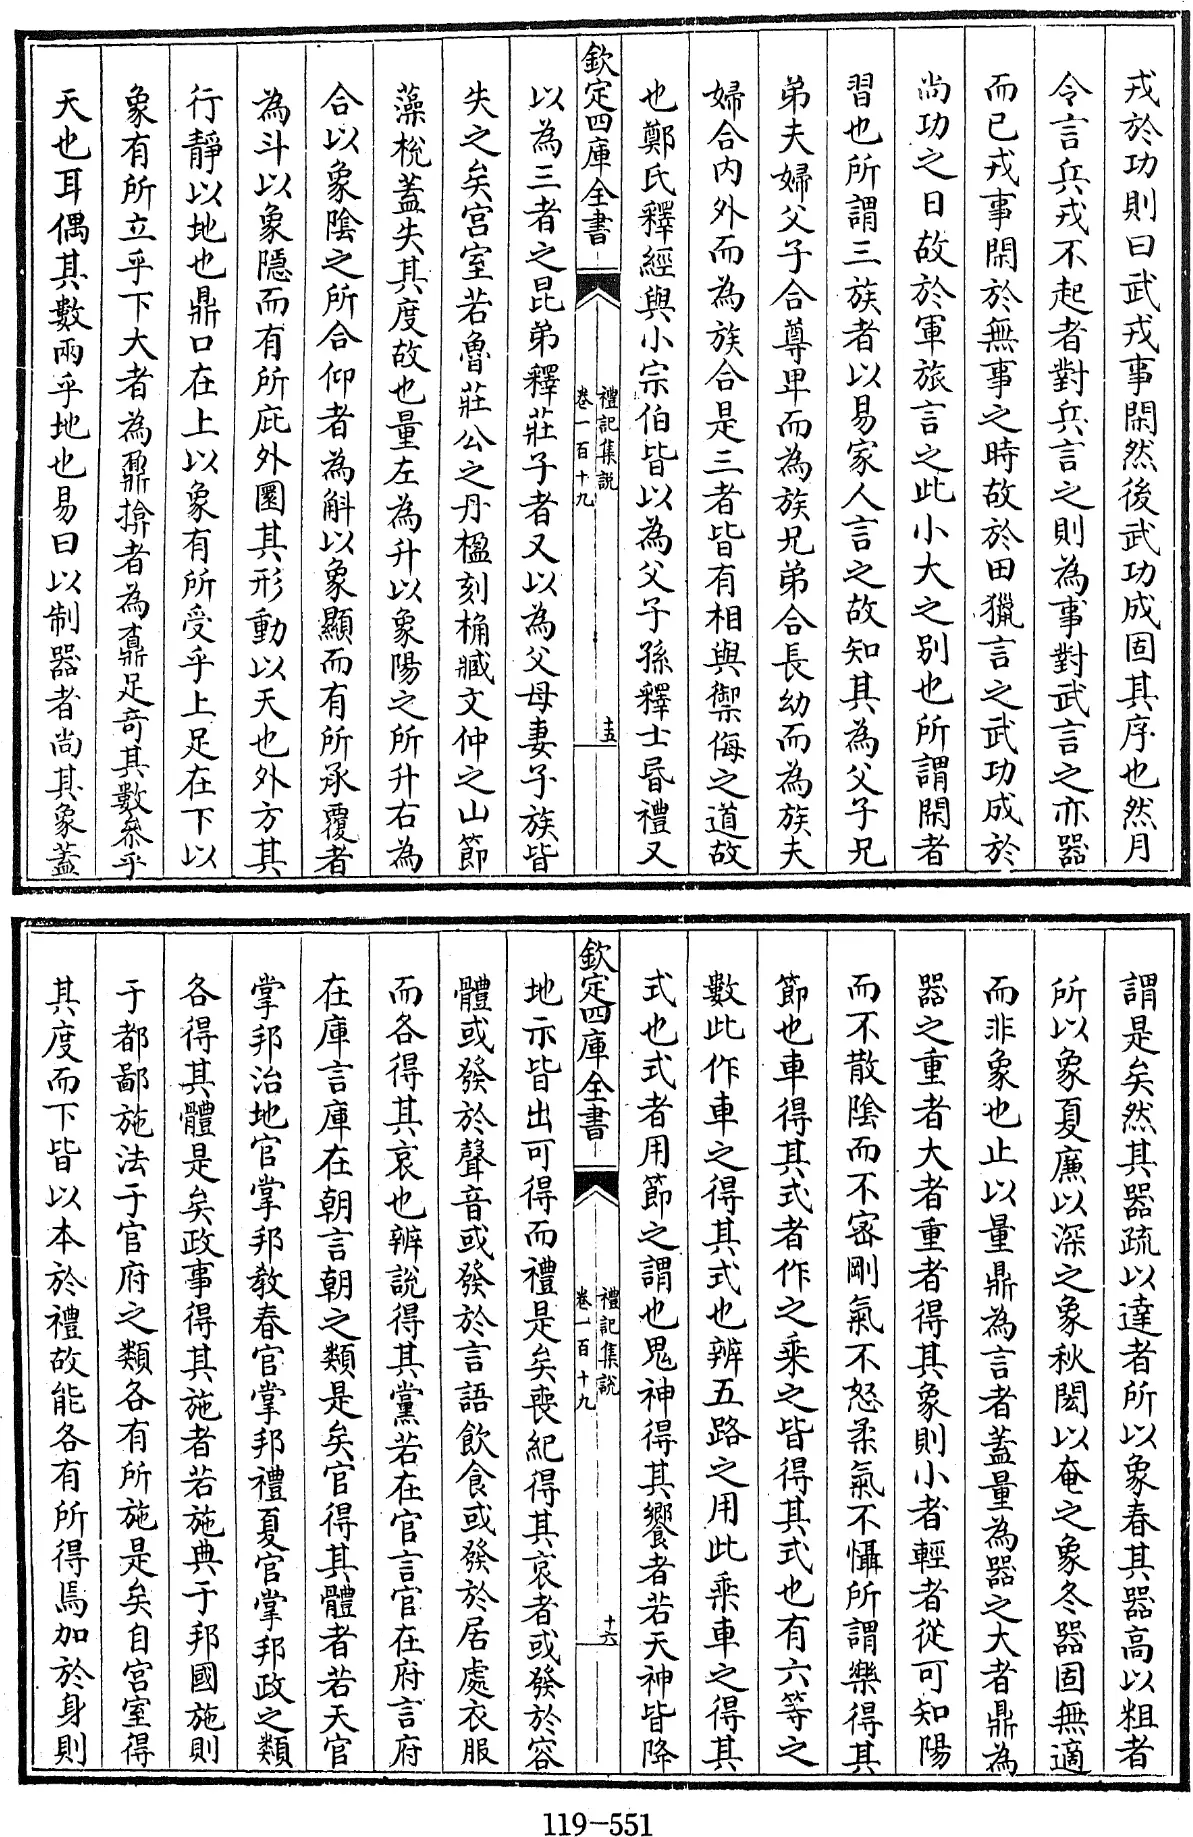 戎於功則曰武戎事閑然後武功成固其序也然月
令言兵戎不起者對兵言之則為事對武言之亦器
而已戎事閑於無事之時故於田獵言之武功成於
尚功之日故於軍旅言之此小大之别也所謂閑者
習也所謂三族者以易家人言之故知其為父子兄
弟夫婦父子合尊卑而為族兄弟合長幼而為族夫
婦合内外而為族合是三者皆有相與禦侮之道故
也鄭氏釋經與小宗伯皆以為父子孫釋士昏禮又
欽定四庫全書
禮記集説
卷一百十九
十五
以為三者之昆弟釋莊子者又以為父母妻子族皆
失之矣宫室若魯莊公之丹楹刻桷臧文仲之山節
藻梲蓋失其度故也量左為升以象陽之所升右為
合以象陰之所合仰者為斛以象顯而有所承覆者
為斗以象隱而有所庇外圜其形動以天也外方其
行靜以地也鼎口在上以象有所受乎上足在下以
象有所立乎下大者為鼐揜者為鼒足奇其數參乎
天也耳偶其數兩乎地也易曰以制器者尚其象蓋
謂是矣然其器疏以達者所以象春其器高以粗者
所以象夏廉以深之象秋閎以奄之象冬器固無適
而非象也止以量鼎為言者蓋量為器之大者鼎為
器之重者大者重者得其象則小者輕者從可知陽
而不散陰而不密剛氣不怒柔氣不懾所謂樂得其
節也車得其式者作之乘之皆得其式也有六等之
數此作車之得其式也辨五路之用此乘車之得其
式也式者用節之謂也鬼神得其饗者若天神皆降
欽定四庫全書
禮記集説
卷一百十九
十六
地示皆出可得而禮是矣喪紀得其哀者或發於容
體或發於聲音或發於言語飲食或發於居處衣服
而各得其哀也辨說得其黨若在官言官在府言府
在庫言庫在朝言朝之類是矣官得其體者若天官
掌邦治地官掌邦教春官掌邦禮夏官掌邦政之類
各得其體是矣政事得其施者若施典于邦國施則
于都鄙施法于官府之類各有所施是矣自宫室得
其度而下皆以本於禮故能各有所得焉加於身則
119-551